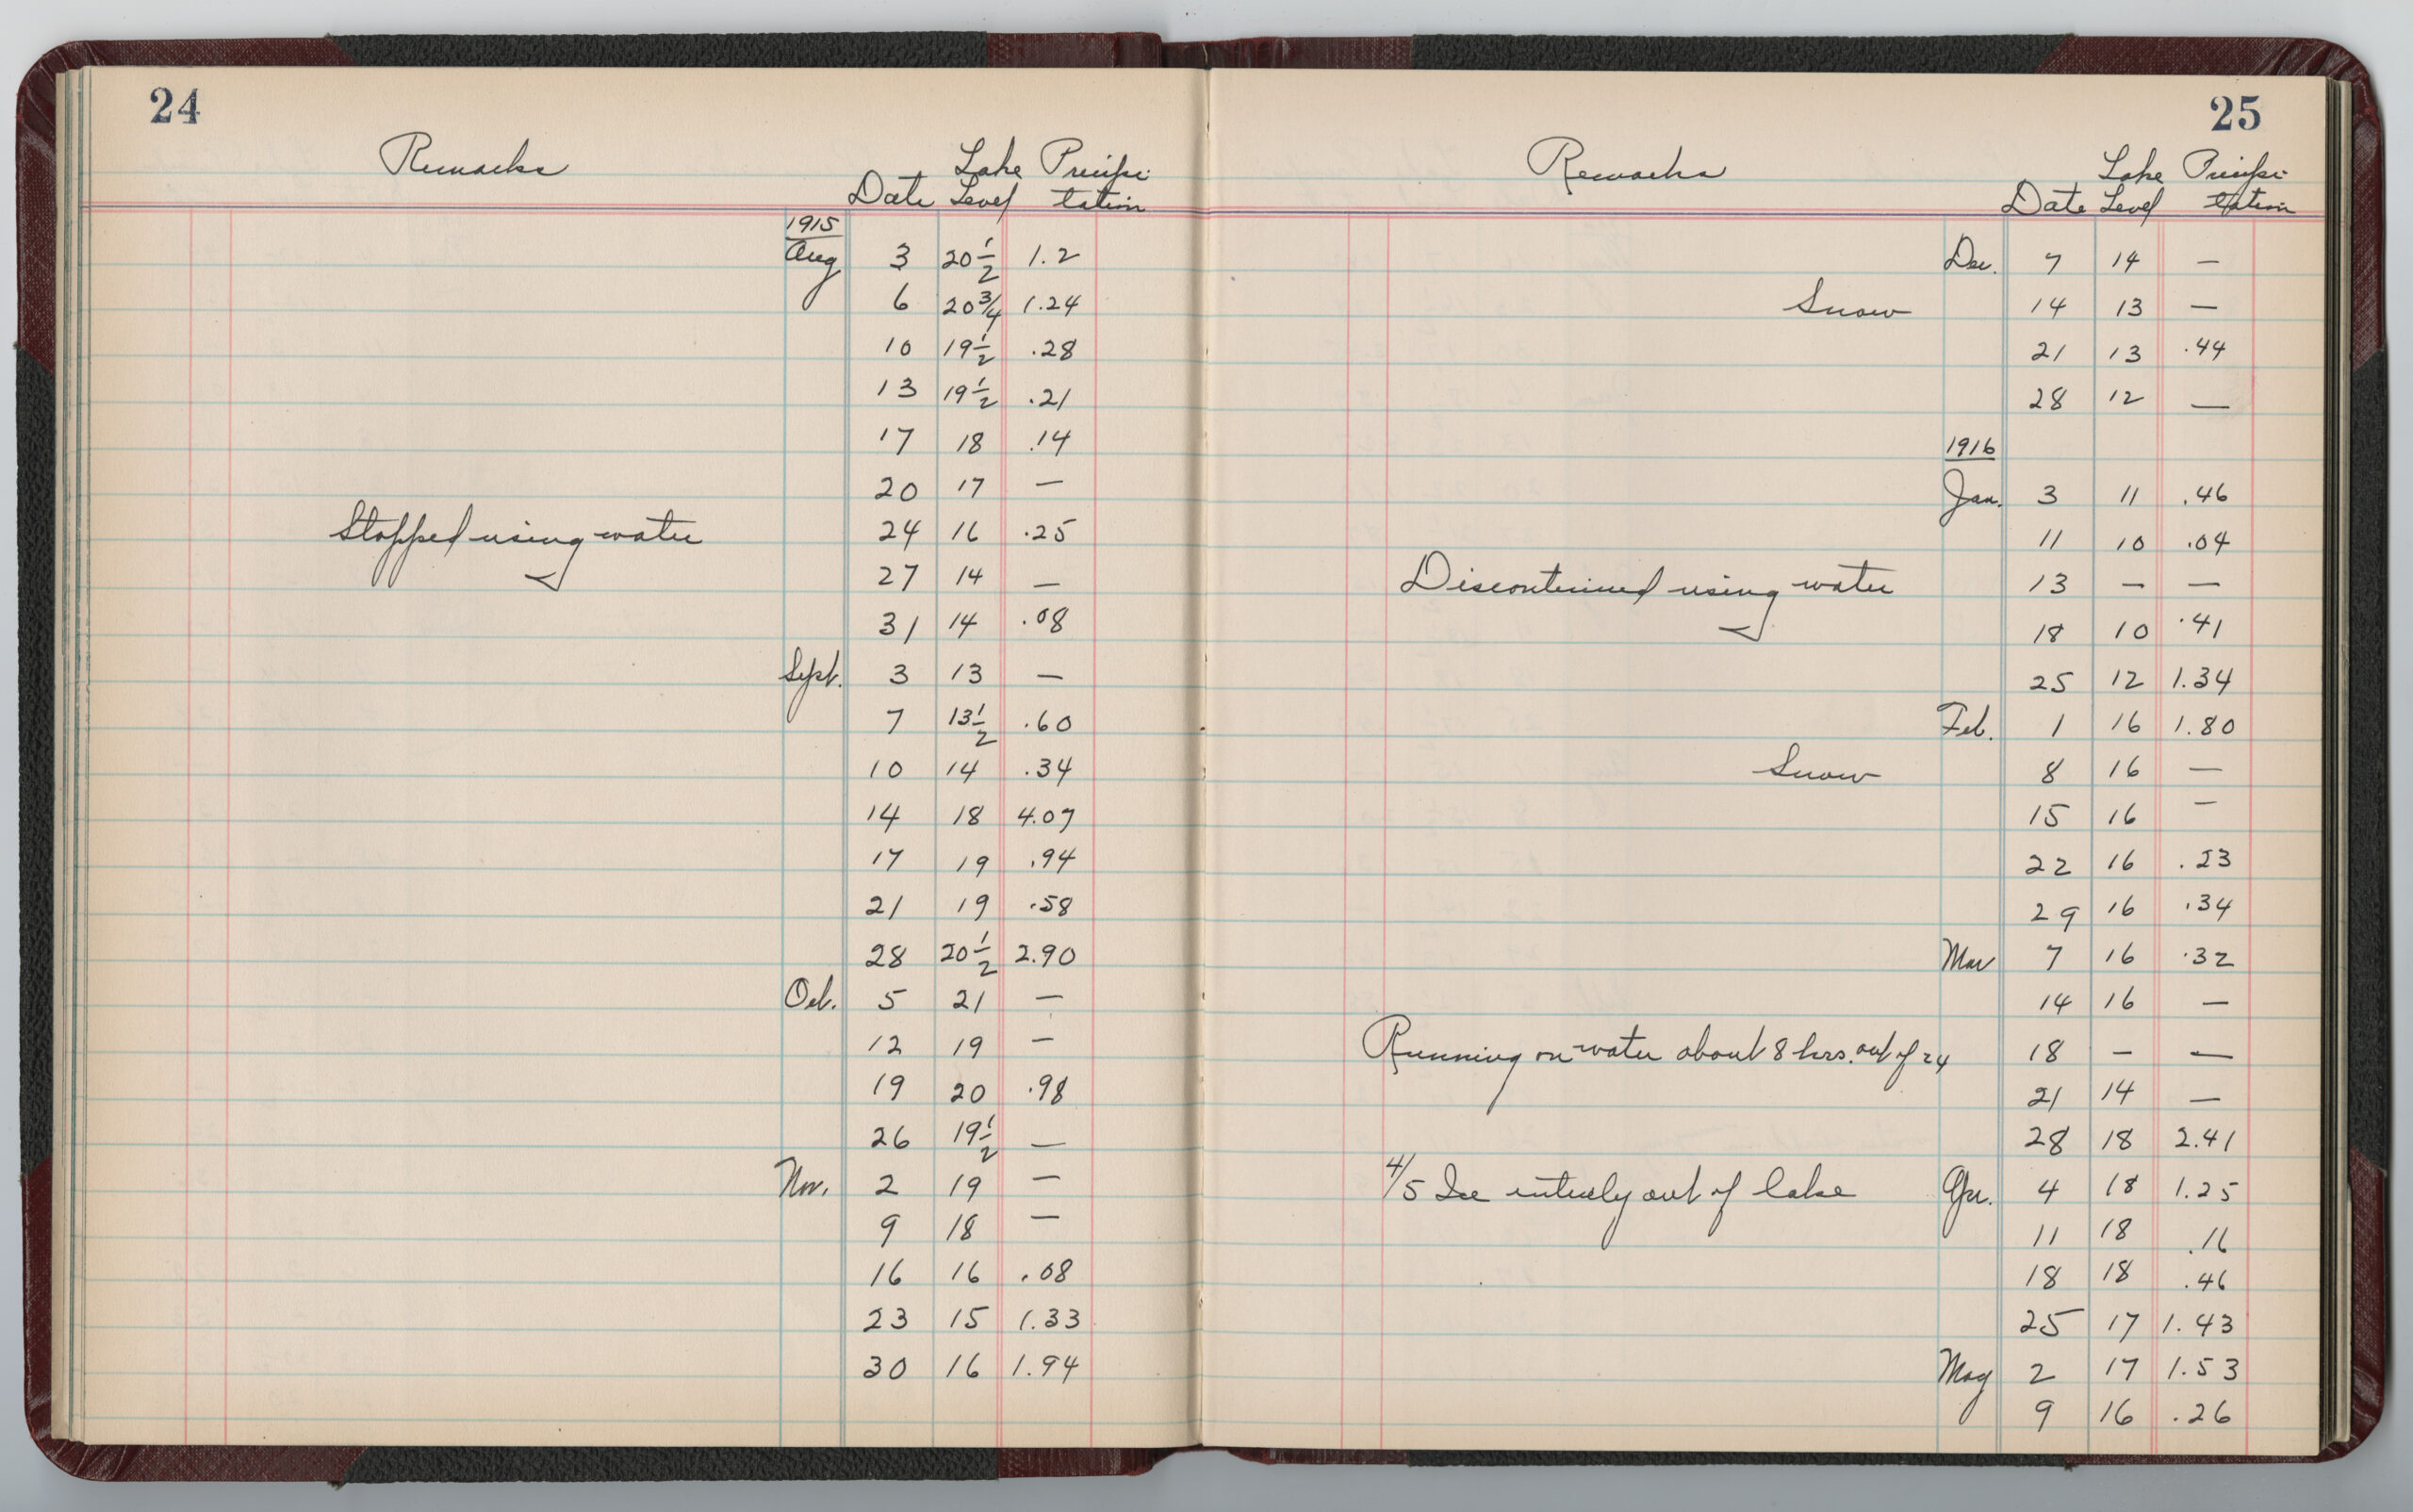 24
Remarks Date Lake Level Precipi- tation
1915
Aug 3 20 1/2 1.2
6 20 3/4 1.24
10 19 1/2 .28
13 19 1/2 .21
17 18 .14
20 17 —
Stopped using water 24 16 .25
27 14 —
31 14 .08
Sept. 3 13 —
7 13 1/2 .60
10 14 .34
14 18 4.07
17 19 .94
21 19 .58
28 20 1/2 2.90
Oct. 5 21 —
12 19 —
19 20 .98
26 19 1/2 —
Nov. 2 19 —
9 18 —
16 16 .08
23 15 1.33
30 16 1.94
25
Remarks Date Lake Level Precipi- tation
Dec. 7 14 —
Snow 14 13 —
21 13 .44
28 12 —
1916
Jan. 3 11 .46
11 10 .04
Discontinued using water 13 — —
18 10 .41
25 12 1.34
Feb. 1 16 1.80
Snow 8 16 —
15 16 —
22 16 .23
29 16 .34
Mar 7 16 .32
14 16 —
Running on water about 8 hrs. out of 24 18 — —
21 14 —
28 18 2.41
4/5 Ice entirely out of lake Apr. 4 18 1.25
11 18 .16
18 18 .46
25 17 1.43
May 2 17 1.53
9 16 .26